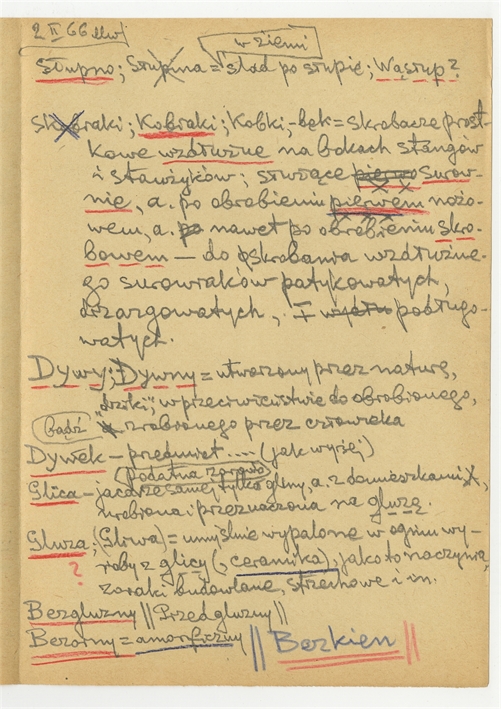 2 II 66
w ziemi
Słupno; Stupina = ślad po stupię; Wąstup?
Skobraki; Kobraki; Kobki, -bęk = skrobacze prost-
kowe wzdłużne na bokach stangów
i stawżyków; służące pierwo surow-
nie, a. po obrabieniu pierwem nożo-
wem, a. po nawet po obrabieniu skro-
bowem — do oskrobania wzdłużne-
go surowiaków patykowatych,
drzazgowatych, I podługo-
watych.
Dywy; Dywny = utworzony przez naturę,
"dziki", w przeciwieństwie do obrobionego,
bądź zrobionego przez człowieka
Dywek — przedmiot .... (jak wyżej)
podatna
Glica — jaodrze samej tylko gliny, a. z domieszkami,
urobiona i przeznaczona na gluzę.
Gluza; (Gliwa) = umyślnie wypalone w ogniu wy-
? roby z glicy (, ceramika), jako to naczynia,
zoraki budowlane, strzechowe i in.
Bezgluzny || Przedgluzny ||
Bezorny = amorficzny || Bezkien ||